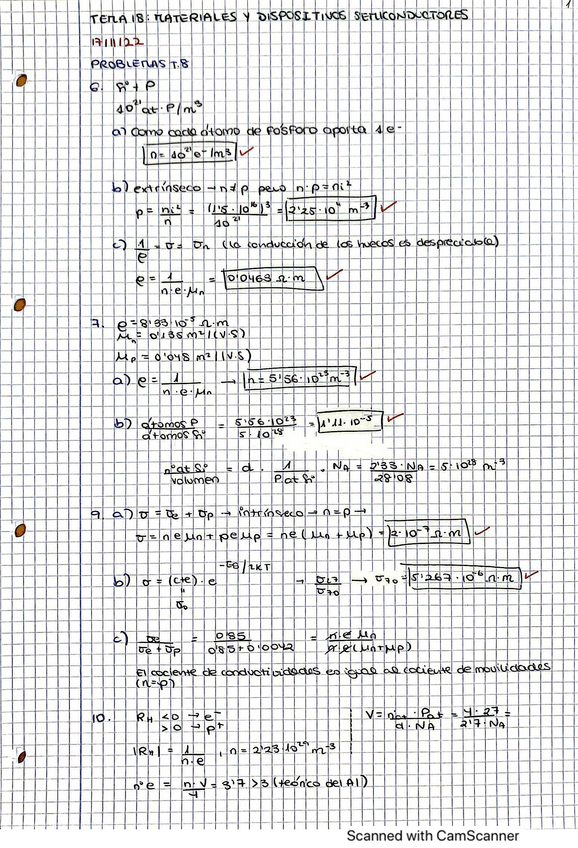 1
TEMA 18: MATERIALES Y DISPOSITIVOS SEMICONDUCTORES
17/11/22
PROBLEMAS T.8
6. Si + P
10²¹ at. P/m³
a) como cada átomo de fósforo aporta 1 e-
n = 10²¹ e-/m³ ✓
b) extrínseco → n ≠ p pero n·p = ni²
p = ni²/n = (1'5·10¹⁶)²/10²¹ = 2'25·10¹¹ m⁻³ ✓
c) 1/ρ = σ = σn (la conducción de los huecos es despreciable)
ρ = 1/(n·e·μn) = 0'0463 Ω·m ✓
7. ρ = 8'33·10⁻⁵ Ω·m
μn = 0'135 m²/(V·S)
μp = 0'048 m²/(V·S)
a) ρ = 1/(n·e·μn) → n = 5'56·10²³ m⁻³ ✓
b) átomos P/átomos Si = 5'56·10²³/5·10²⁸ = 1'11·10⁻⁵ ✓
nºat Si/volumen = d · 1/P at Si · NA = 2'33·NA/28'08 = 5·10²⁸ m⁻³
9. a) σ = σe + σp → intrínseco → n = p →
σ = n e μn + p e μp = n e (μn + μp) = 2·10⁻⁷ Ω·m ✓
b) σ = (cte)·e^(-EG/2KT) → σ27/σ70 → σ70 = 5'267·10⁻⁶ Ω·m ✓
"
σ0
c) σe/(σe + σp) = 0'85/(0'85 + 0'0042) = n·e μn/(n·e(μn + μp))
El cociente de conductividades es igual al cociente de movilidades
(n=p)
10. RH <0 → e⁻
>0 → p⁺
V = nat · Pat/(d · NA) = 4·27/(2'7·NA) =
|RH| = 1/(n·e), n = 2'23·10²⁹ m⁻³
nºe = n·V/4 = 3'7 > 3 (teórico del Al)
Scanned with CamScanner